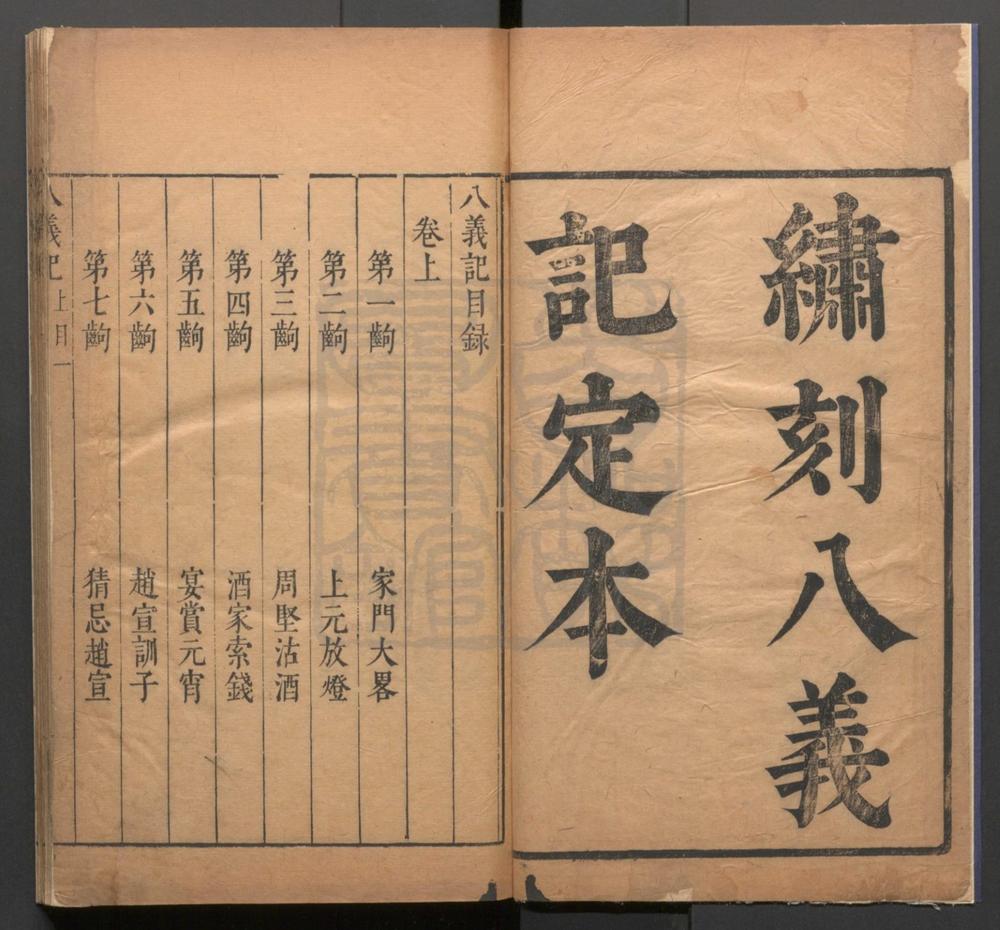 繡刻八義
記定本
八義記目錄
卷上
第一齣 家門大畧
第二齣 上元放燈
第三齣 周堅沽酒
第四齣 酒家索錢
第五齣 宴賞元宵
第六齣 趙宣訓子
第七齣 猜忌趙宣
八義記 上目 一